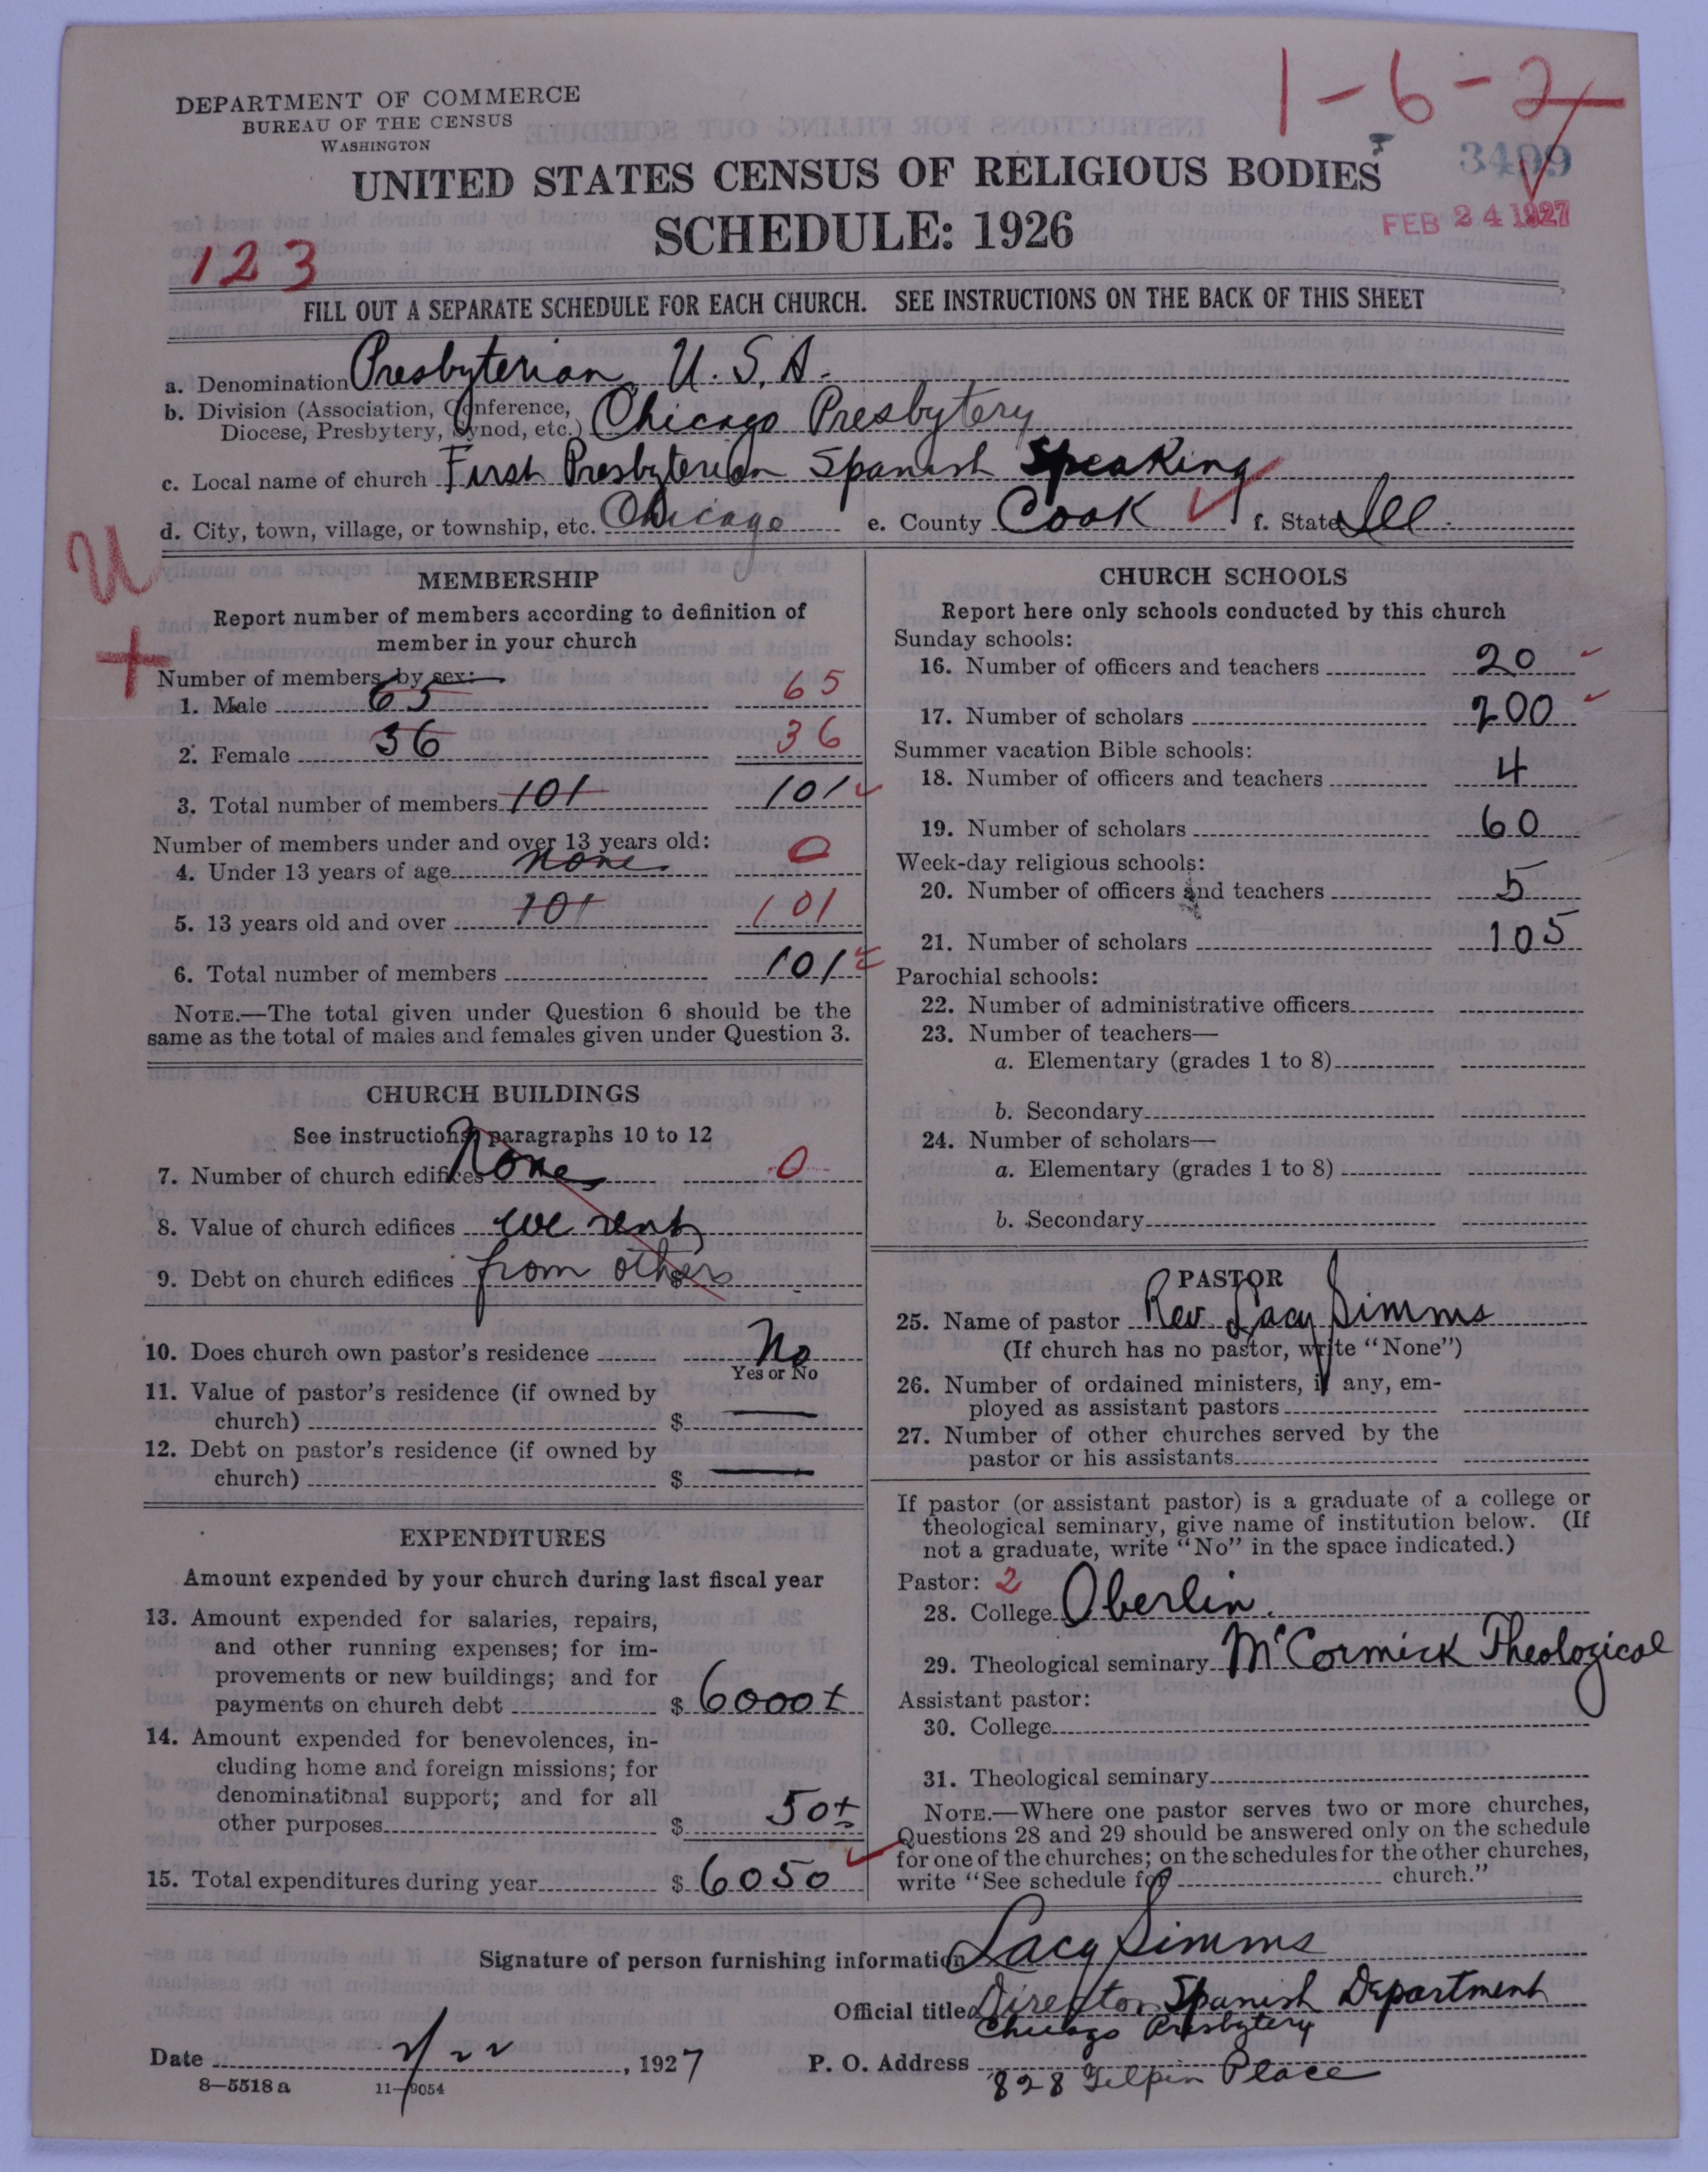 1-6-2
DEPARTMENT OF COMMERCE
BUREAU OF THE CENSUS
WASHINGTON
UNITED STATES CENSUS OF RELIGIOUS BODIES
3499
SCHEDULE: 1926
FEB 24 1927
123
FILL OUT A SEPARATE SCHEDULE FOR EACH CHURCH. SEE INSTRUCTIONS ON THE BACK OF THIS SHEET
a. Denomination Presbyterian U.S.A.
b. Division (Association, Conference,
Diocese, Presbytery, Synod, etc.) Chicago Presbytery
c. Local name of church First Presbyterian Spanish Speaking
d. City, town, village, or township, etc. Chicago e. County Cook f. State Ill.
U
+
MEMBERSHIP
Report number of members according to definition of
member in your church
Number of members by sex:
1. Male 65 65
2. Female 36 36
3. Total number of members 101 101
Number of members under and over 13 years old:
4. Under 13 years of age none 0
5. 13 years old and over 101 101
6. Total number of members 101
NOTE.—The total given under Question 6 should be the
same as the total of males and females given under Question 3.
CHURCH BUILDINGS
See instructions, paragraphs 10 to 12
7. Number of church edifices None 0
8. Value of church edifices we rent
9. Debt on church edifices from others $
10. Does church own pastor's residence No
Yes or No
11. Value of pastor's residence (if owned by
church) $ —
12. Debt on pastor's residence (if owned by
church) $ —
EXPENDITURES
Amount expended by your church during last fiscal year
13. Amount expended for salaries, repairs,
and other running expenses; for im-
provements or new buildings; and for
payments on church debt $ 6000±
14. Amount expended for benevolences, in-
cluding home and foreign missions; for
denominational support; and for all
other purposes $ 50±
15. Total expenditures during year $ 6050
CHURCH SCHOOLS
Report here only schools conducted by this church
Sunday schools:
16. Number of officers and teachers 20
17. Number of scholars 200
Summer vacation Bible schools:
18. Number of officers and teachers 4
19. Number of scholars 60
Week-day religious schools:
20. Number of officers and teachers 5
21. Number of scholars 105
Parochial schools:
22. Number of administrative officers
23. Number of teachers—
a. Elementary (grades 1 to 8)
b. Secondary
24. Number of scholars—
a. Elementary (grades 1 to 8)
b. Secondary
PASTOR
25. Name of pastor Rev Lacy Simms
(If church has no pastor, write "None")
26. Number of ordained ministers, if any, em-
ployed as assistant pastors
27. Number of other churches served by the
pastor or his assistants
If pastor (or assistant pastor) is a graduate of a college or
theological seminary, give name of institution below. (If
not a graduate, write "No" in the space indicated.)
Pastor: 2
28. College Oberlin
29. Theological seminary McCormick Theological
Assistant pastor:
30. College
31. Theological seminary
NOTE.—Where one pastor serves two or more churches,
Questions 28 and 29 should be answered only on the schedule
for one of the churches; on the schedules for the other churches,
write "See schedule for church."
Signature of person furnishing information Lacy Simms
Official title Director Spanish Department
Chicago Presbytery
Date 2/22, 1927 P. O. Address 828 Gilpin Place
8-5518 a 11-9054